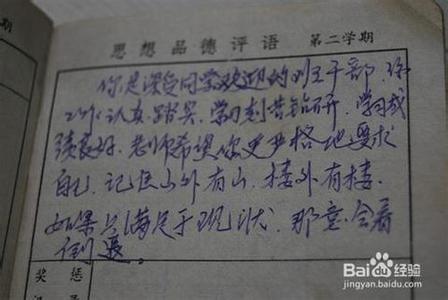 思想品德评语 第二学期
你是深受同学欢迎的班干部，你
工作认真踏实，学习刻苦钻研，学习成
绩良好。老师希望你更严格地要求
自己，记住山外有山，楼外有楼，
如果只满足于现状，那意会着
倒退。
奖惩
Baidu经验
jingyan.baidu.com